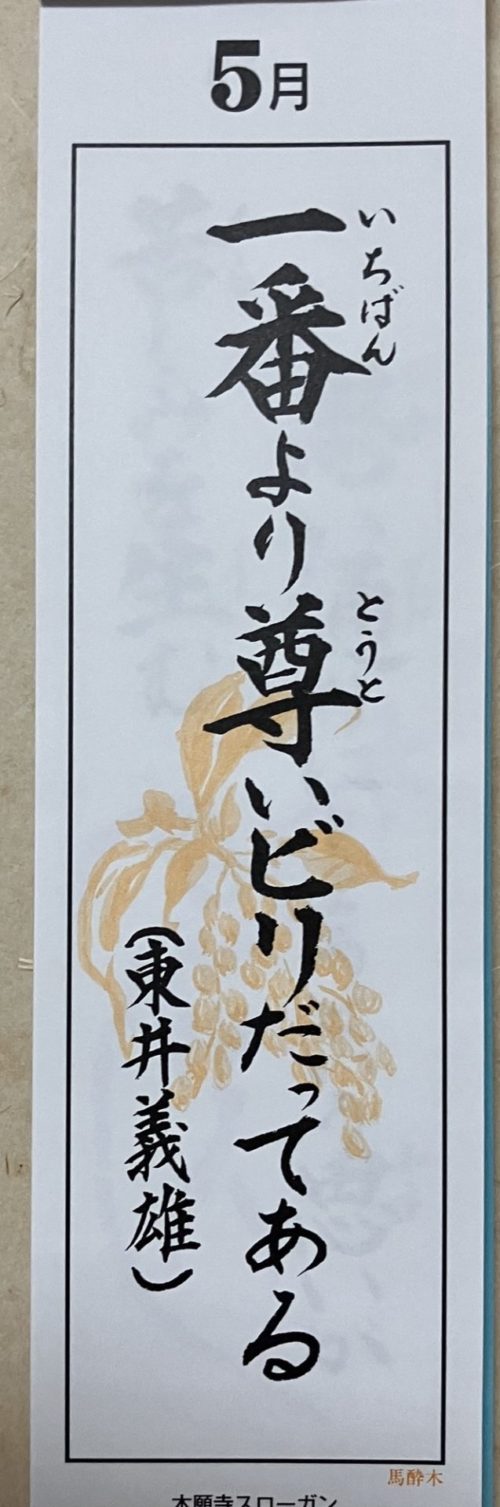 5月
いちばん
一番より尊いビリだってある
とうと
(東井義雄)
馬酔木
本願寺スローガン